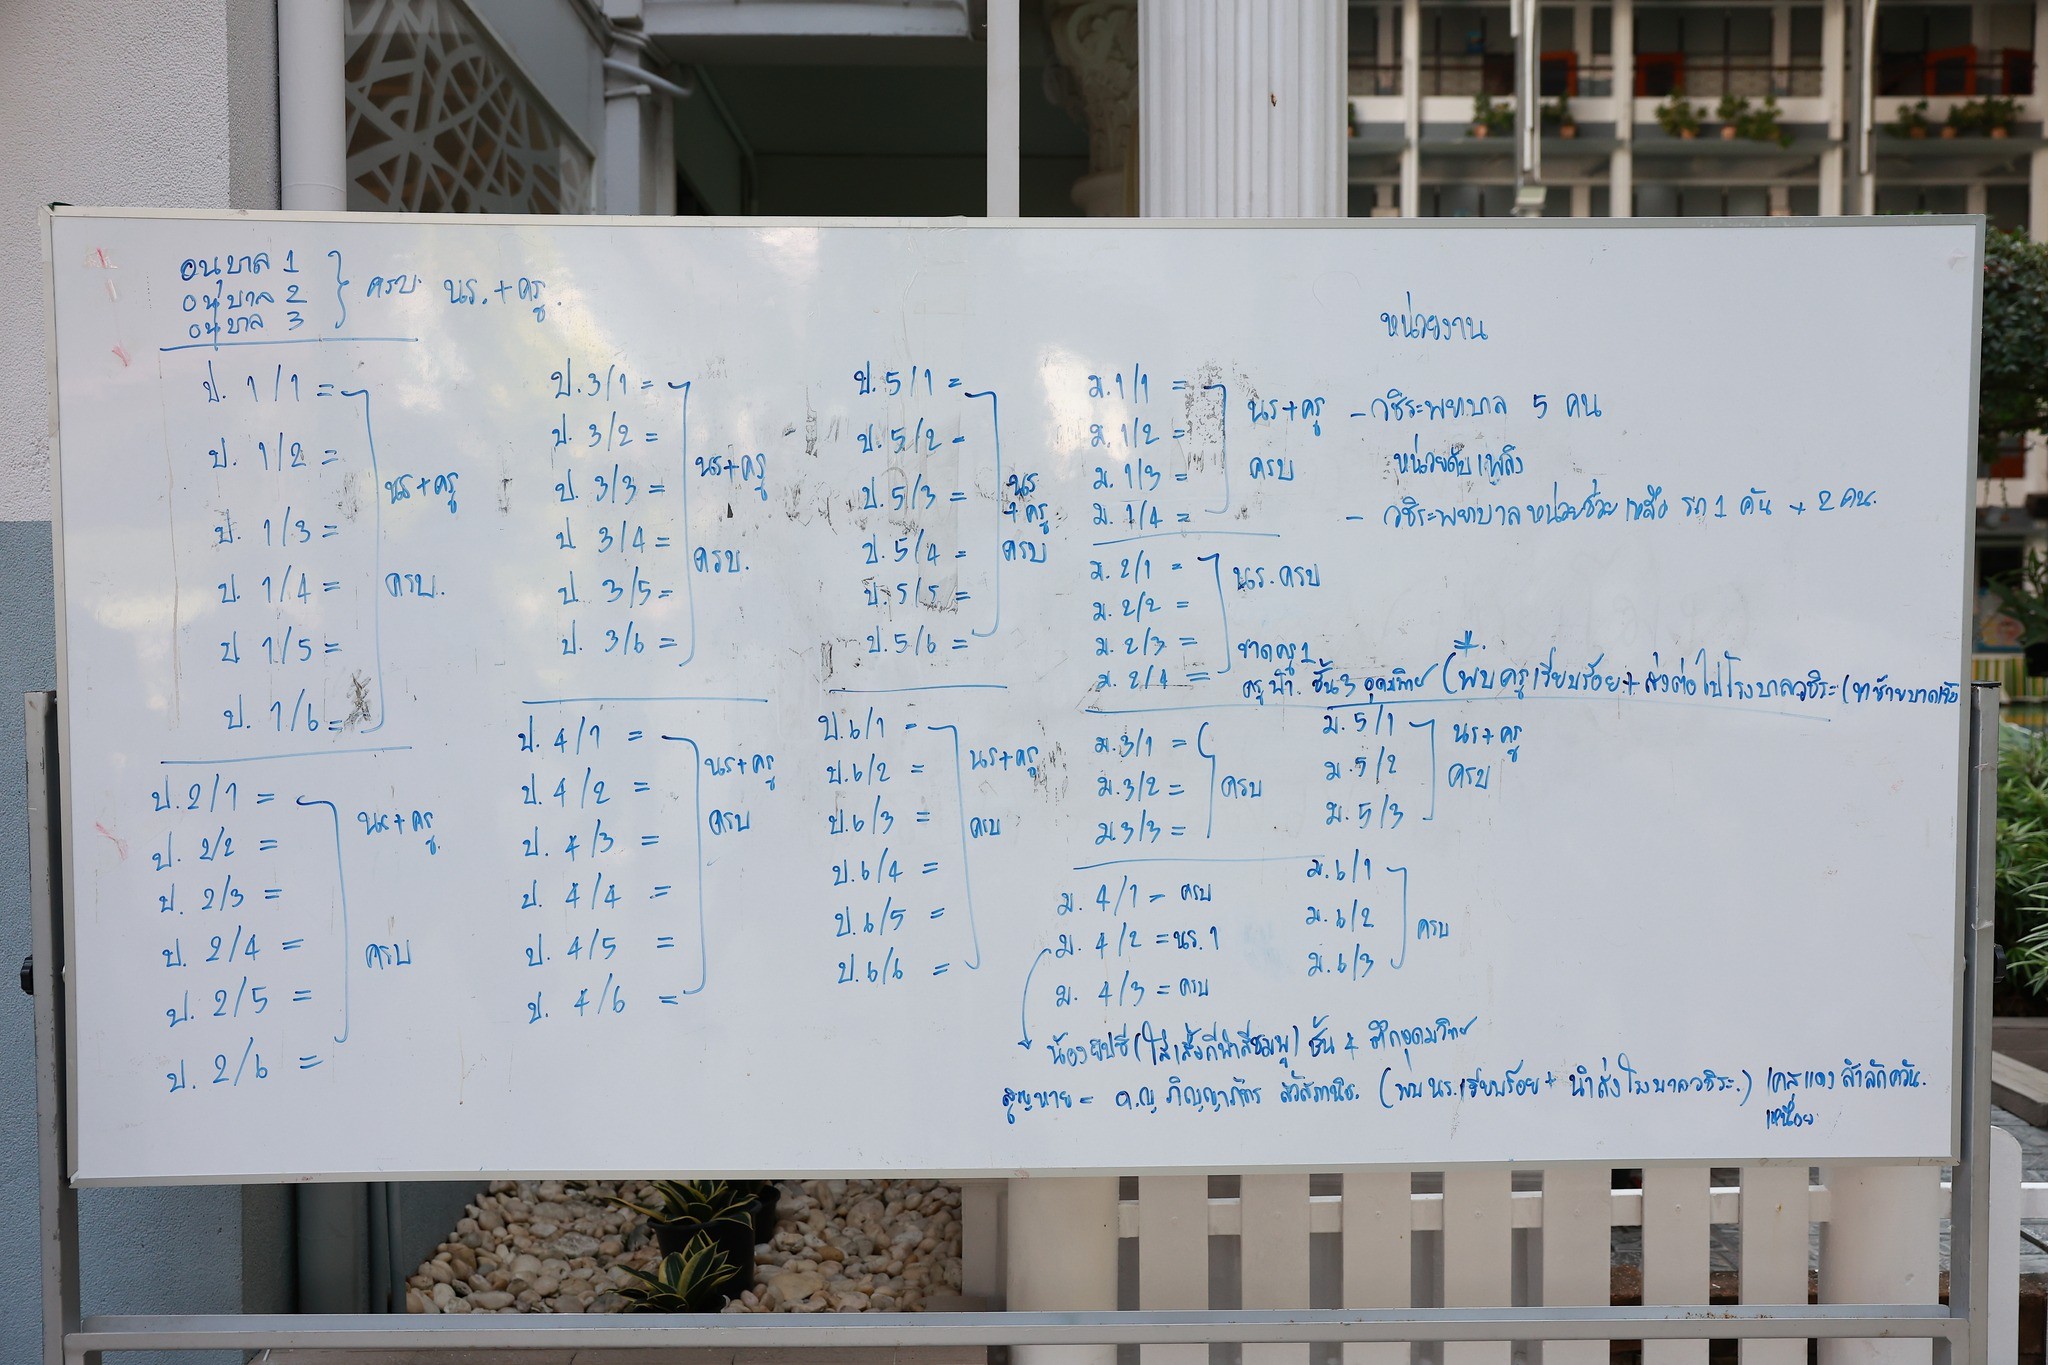 อนุบาล 1
อนุบาล 2
อนุบาล 3
ครบ นร. + ครู.
ป. 1/1 =
ป. 1/2 =
ป. 1/3 =
ป. 1/4 =
ป 1/5 =
ป. 1/6 =
นร + ครู
ครบ.
ป. 2/1 =
ป. 2/2 =
ป. 2/3 =
ป. 2/4 =
ป. 2/5 =
ป. 2/6 =
นร + ครู
ครบ
ป. 3/1 =
ป. 3/2 =
ป. 3/3 =
ป 3/4 =
ป. 3/5 =
ป. 3/6 =
นร + ครู
ครบ.
ป. 4/1 =
ป. 4/2 =
ป. 4/3 =
ป. 4/4 =
ป. 4/5 =
ป. 4/6 =
นร + ครู
ครบ
ป. 5/1 =
ป. 5/2 =
ป. 5/3 =
ป. 5/4 =
ป. 5/5 =
ป. 5/6 =
นร
+ ครู
ครบ
ป. 6/1 =
ป. 6/2 =
ป. 6/3 =
ป. 6/4 =
ป. 6/5 =
ป. 6/6 =
นร + ครู
ครบ
ม. 1/1 =
ม. 1/2 =
ม. 1/3 =
ม. 1/4 =
นร + ครู
ครบ
ม. 2/1 =
ม. 2/2 =
ม. 2/3 =
ม. 2/4 =
นร. ครบ
ขาดครู 1
ครู ชั้น 3 อุดมวิทย์ (พบครูเรียบร้อย + ส่งต่อไปโรงบาลวชิระ
ม. 3/1 =
ม. 3/2 =
ม. 3/3 =
ครบ
ม. 4/1 = ครบ
ม. 4/2 = นร. 1
ม. 4/3 = ครบ
ม. 5/1
ม. 5/2
ม. 5/3
นร + ครู
ครบ
ม. 6/1
ม. 6/2
ม. 6/3
ครบ
น้อง (ใส่เสื้อกีฬาสีชมพู) ชั้น 4 ตึกอุดมวิทย์
สูญหาย = ด.ญ (พบ นร. เรียบร้อย + นำส่งโรงบาลวชิระ.) เคสแดง สำลักควัน.
เหนื่อย
หน่วยงาน
- วชิระพยาบาล 5 คน
หน่วยดับเพลิง
- วชิระพยาบาลหน่วยช่วยเหลือ รถ 1 คัน + 2 คน.